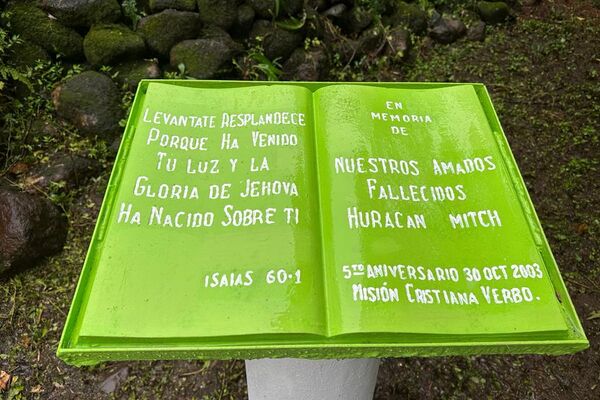 LEVANTATE RESPLANDECE
PORQUE HA VENIDO
TU LUZ Y LA
GLORIA DE JEHOVA
HA NACIDO SOBRE TI
ISAIAS 60-1
EN
MEMORIA
DE
NUESTROS AMADOS
FALLECIDOS
HURACAN MITCH
5TO ANIVERSARIO 30 OCT 2003
MISIÓN CRISTIANA VERBO.